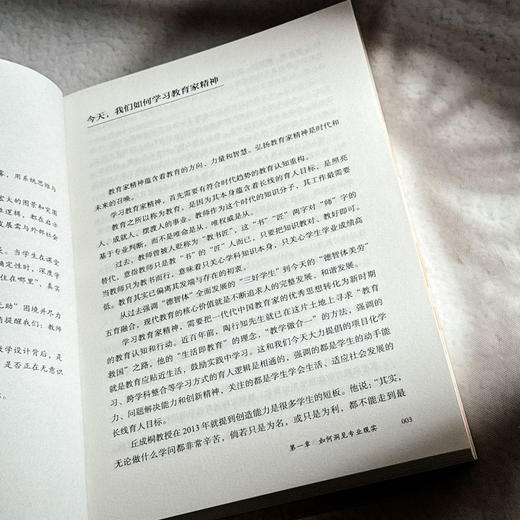 露，用系统思维与
宏大的图景和突围
性逻辑，都在启示
发展需与外部社会
当学生在课堂
确定性时，深度学
住在哪里”，真实
无助”困境并尽力
悄提醒我们：教师
教学设计背后，是
是否正在无意识
今天，我们如何学习教育家精神
教育家精神蕴含着教育的方向、力量和智慧。弘扬教育家精神是时代和
未来的召唤。
学习教育家精神，首先需要有符合时代趋势的教育认知重构。
教育之所以称为教育，是因为其本身蕴含着长线的育人目标，是照亮
人、成就人、摆渡人的事业。教师作为这个时代的知识分子，其工作最需要
基于专业判断，而不是唯命是从、唯权威是从。
过去，教师曾被人贬称为“教书匠”，这“书”“匠”两字对“师”字的
替代，意指教师只是教“书”的“匠”人而已，只要把知识教对、教好即可。
教师只为教书而行，意味着只关心学科知识本身，只关心学生学业成绩高
低，教育其实已偏离其发端与存在的初衷。
从过去强调“德智体”全面发展的“三好学生”到今天的“德智体美劳”
五育融合，现代教育的核心价值就是不断追求人的完整发展、和谐发展。
学习教育家精神，需要把一代代中国教育家的优秀思想转化为新时期
的教育认知和行动。近百年前，陶行知先生就已在这片土地上寻求“教育
救国”之路，他的“生活即教育”的理念，“教学做合一”的方法，强调的
就是教育应贴近生活，鼓励实践中学习。这和我们今天大力提倡的项目化学
习、跨学科整合等学习方式的育人逻辑是相通的，强调的都是学生的动手能
力、问题解决能力和创新精神，关注的都是学生学会生活、适应社会发展的
长线育人目标。
丘成桐教授在 2013 年就提到创造能力是很多学生的短板。他说：“其实，
无论做什么学问都非常辛苦，倘若只是为名，或只是为利，都不能走到最
第一章：如何洞见专业现实 003